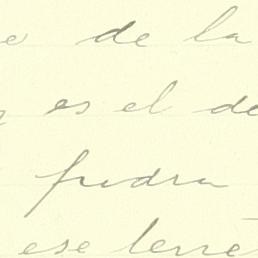 e de la
es el de
piedra
ese terre